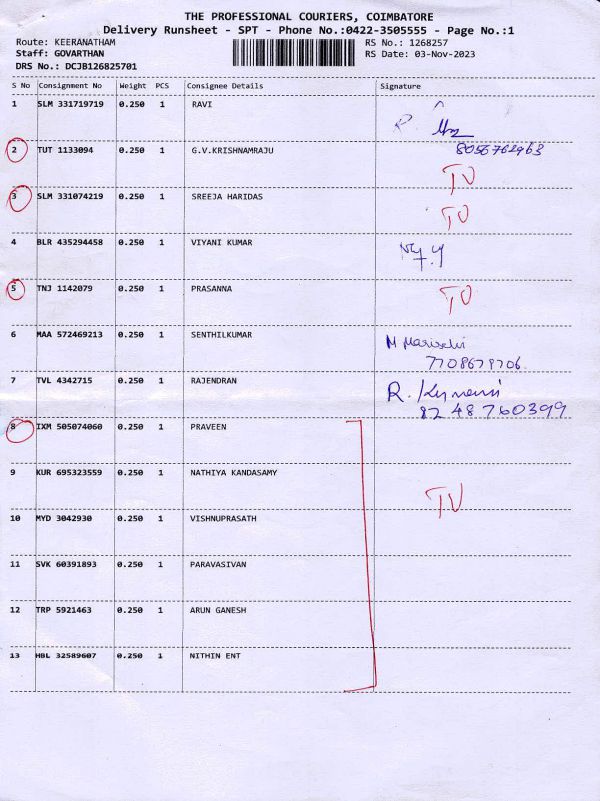 THE PROFESSIONAL COURIERS, COIMBATORE
Delivery Runsheet - SPT - Phone No.:0422-3505555 - Page No.:1
Route: KEERANATHAM RS No.: 1268257
Staff: GOVARTHAN RS Date: 03-Nov-2023
DRS No.: DCJB126825701
S No Consignment No Weight PCS Consignee Details Signature
1 SLM 331719719 0.250 1 RAVI R
8056762963
2 TUT 1133094 0.250 1 G.V.KRISHNAMRAJU TU
3 SLM 331074219 0.250 1 SREEJA HARIDAS TU
4 BLR 435294458 0.250 1 VIYANI KUMAR
5 TNJ 1142079 0.250 1 PRASANNA TU
6 MAA 572469213 0.250 1 SENTHILKUMAR M
7708679706
7 TVL 4342715 0.250 1 RAJENDRAN R.
82 48760399
8 IXM 505074060 0.250 1 PRAVEEN
9 KUR 695323559 0.250 1 NATHIYA KANDASAMY TU
10 MYD 3042930 0.250 1 VISHNUPRASATH
11 SVK 60391893 0.250 1 PARAVASIVAN
12 TRP 5921463 0.250 1 ARUN GANESH
13 HBL 32589607 0.250 1 NITHIN ENT